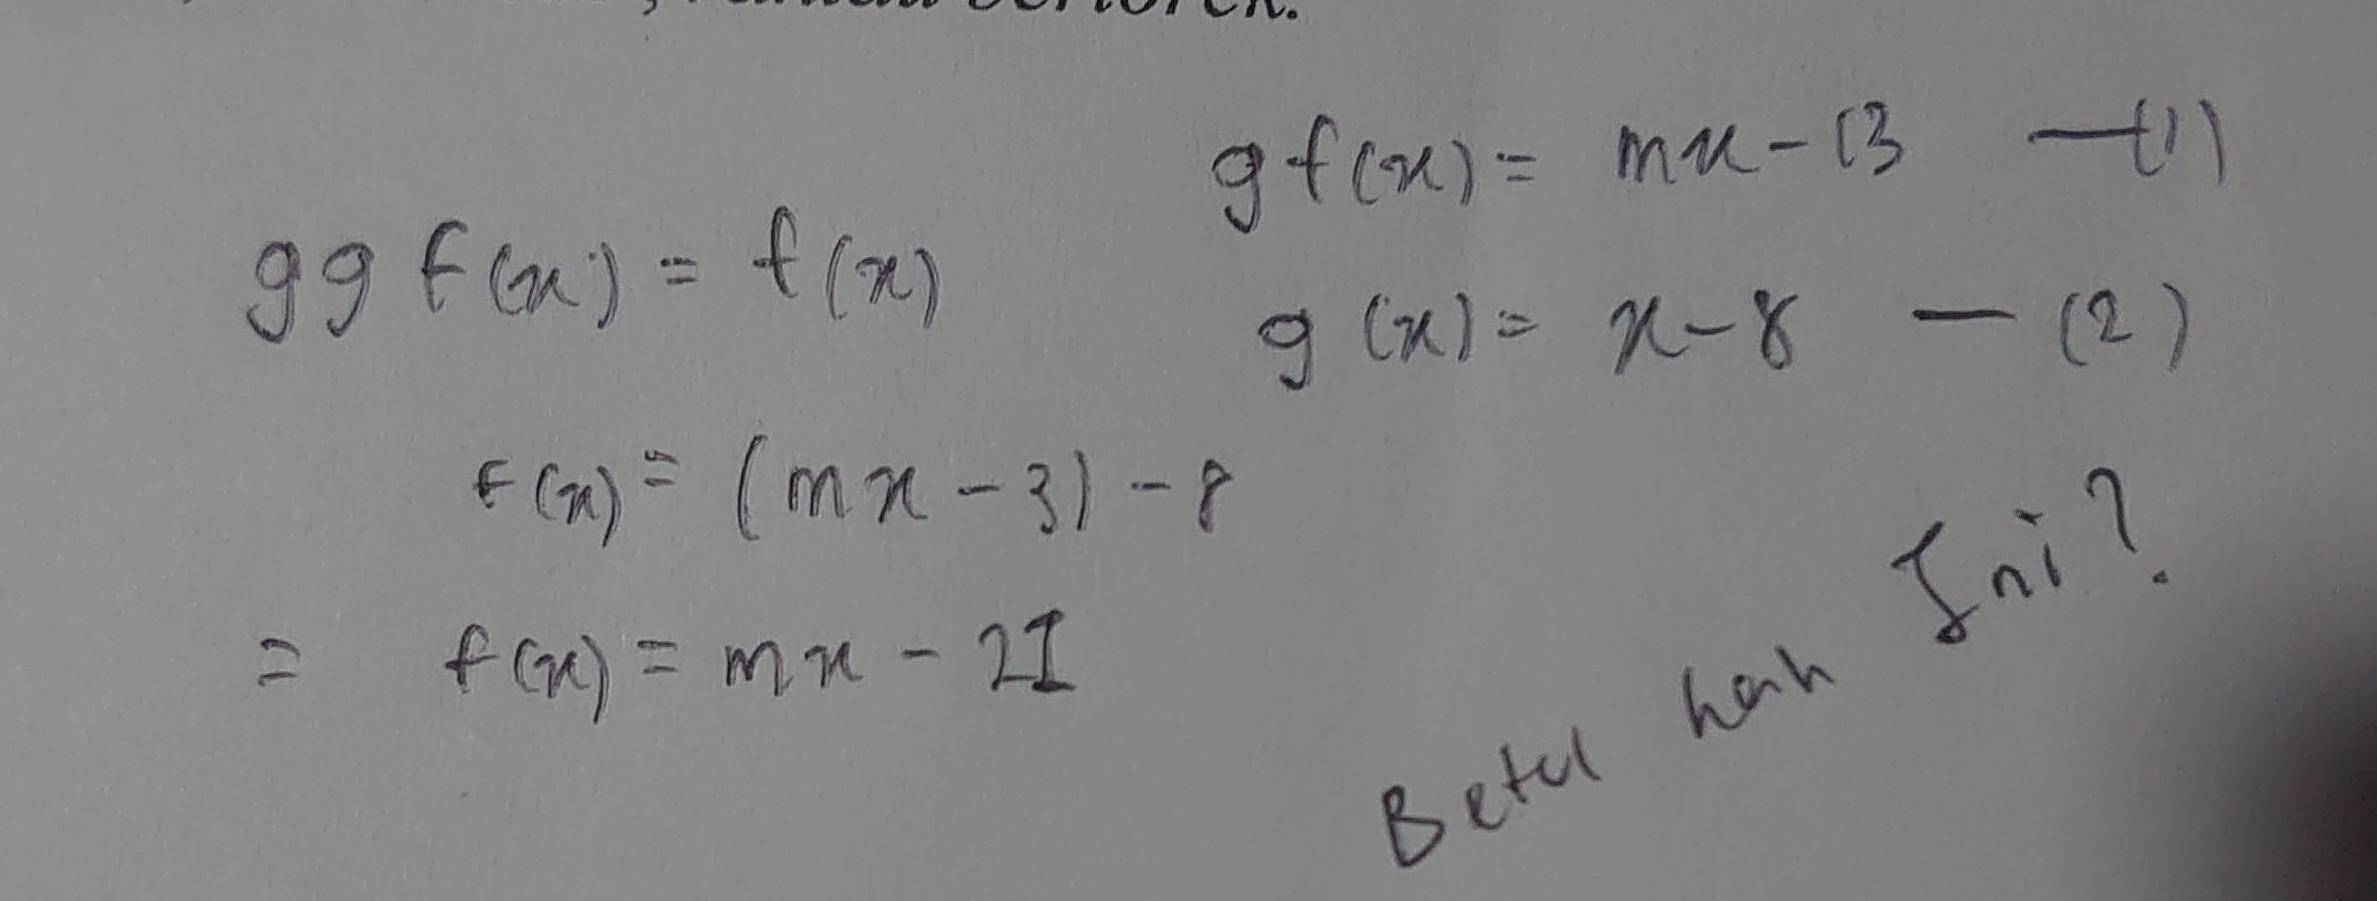 gf(x) = mx - 13 — (1)
ggf(x) = f(x)
g(x) = x - 8 — (2)
f(x) = (mx - 3) - 8
= f(x) = mx - 21
Betul kah Ini?